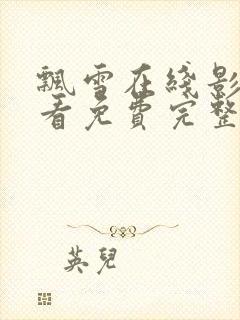 飄雪在綫影
看免費完整
英兒